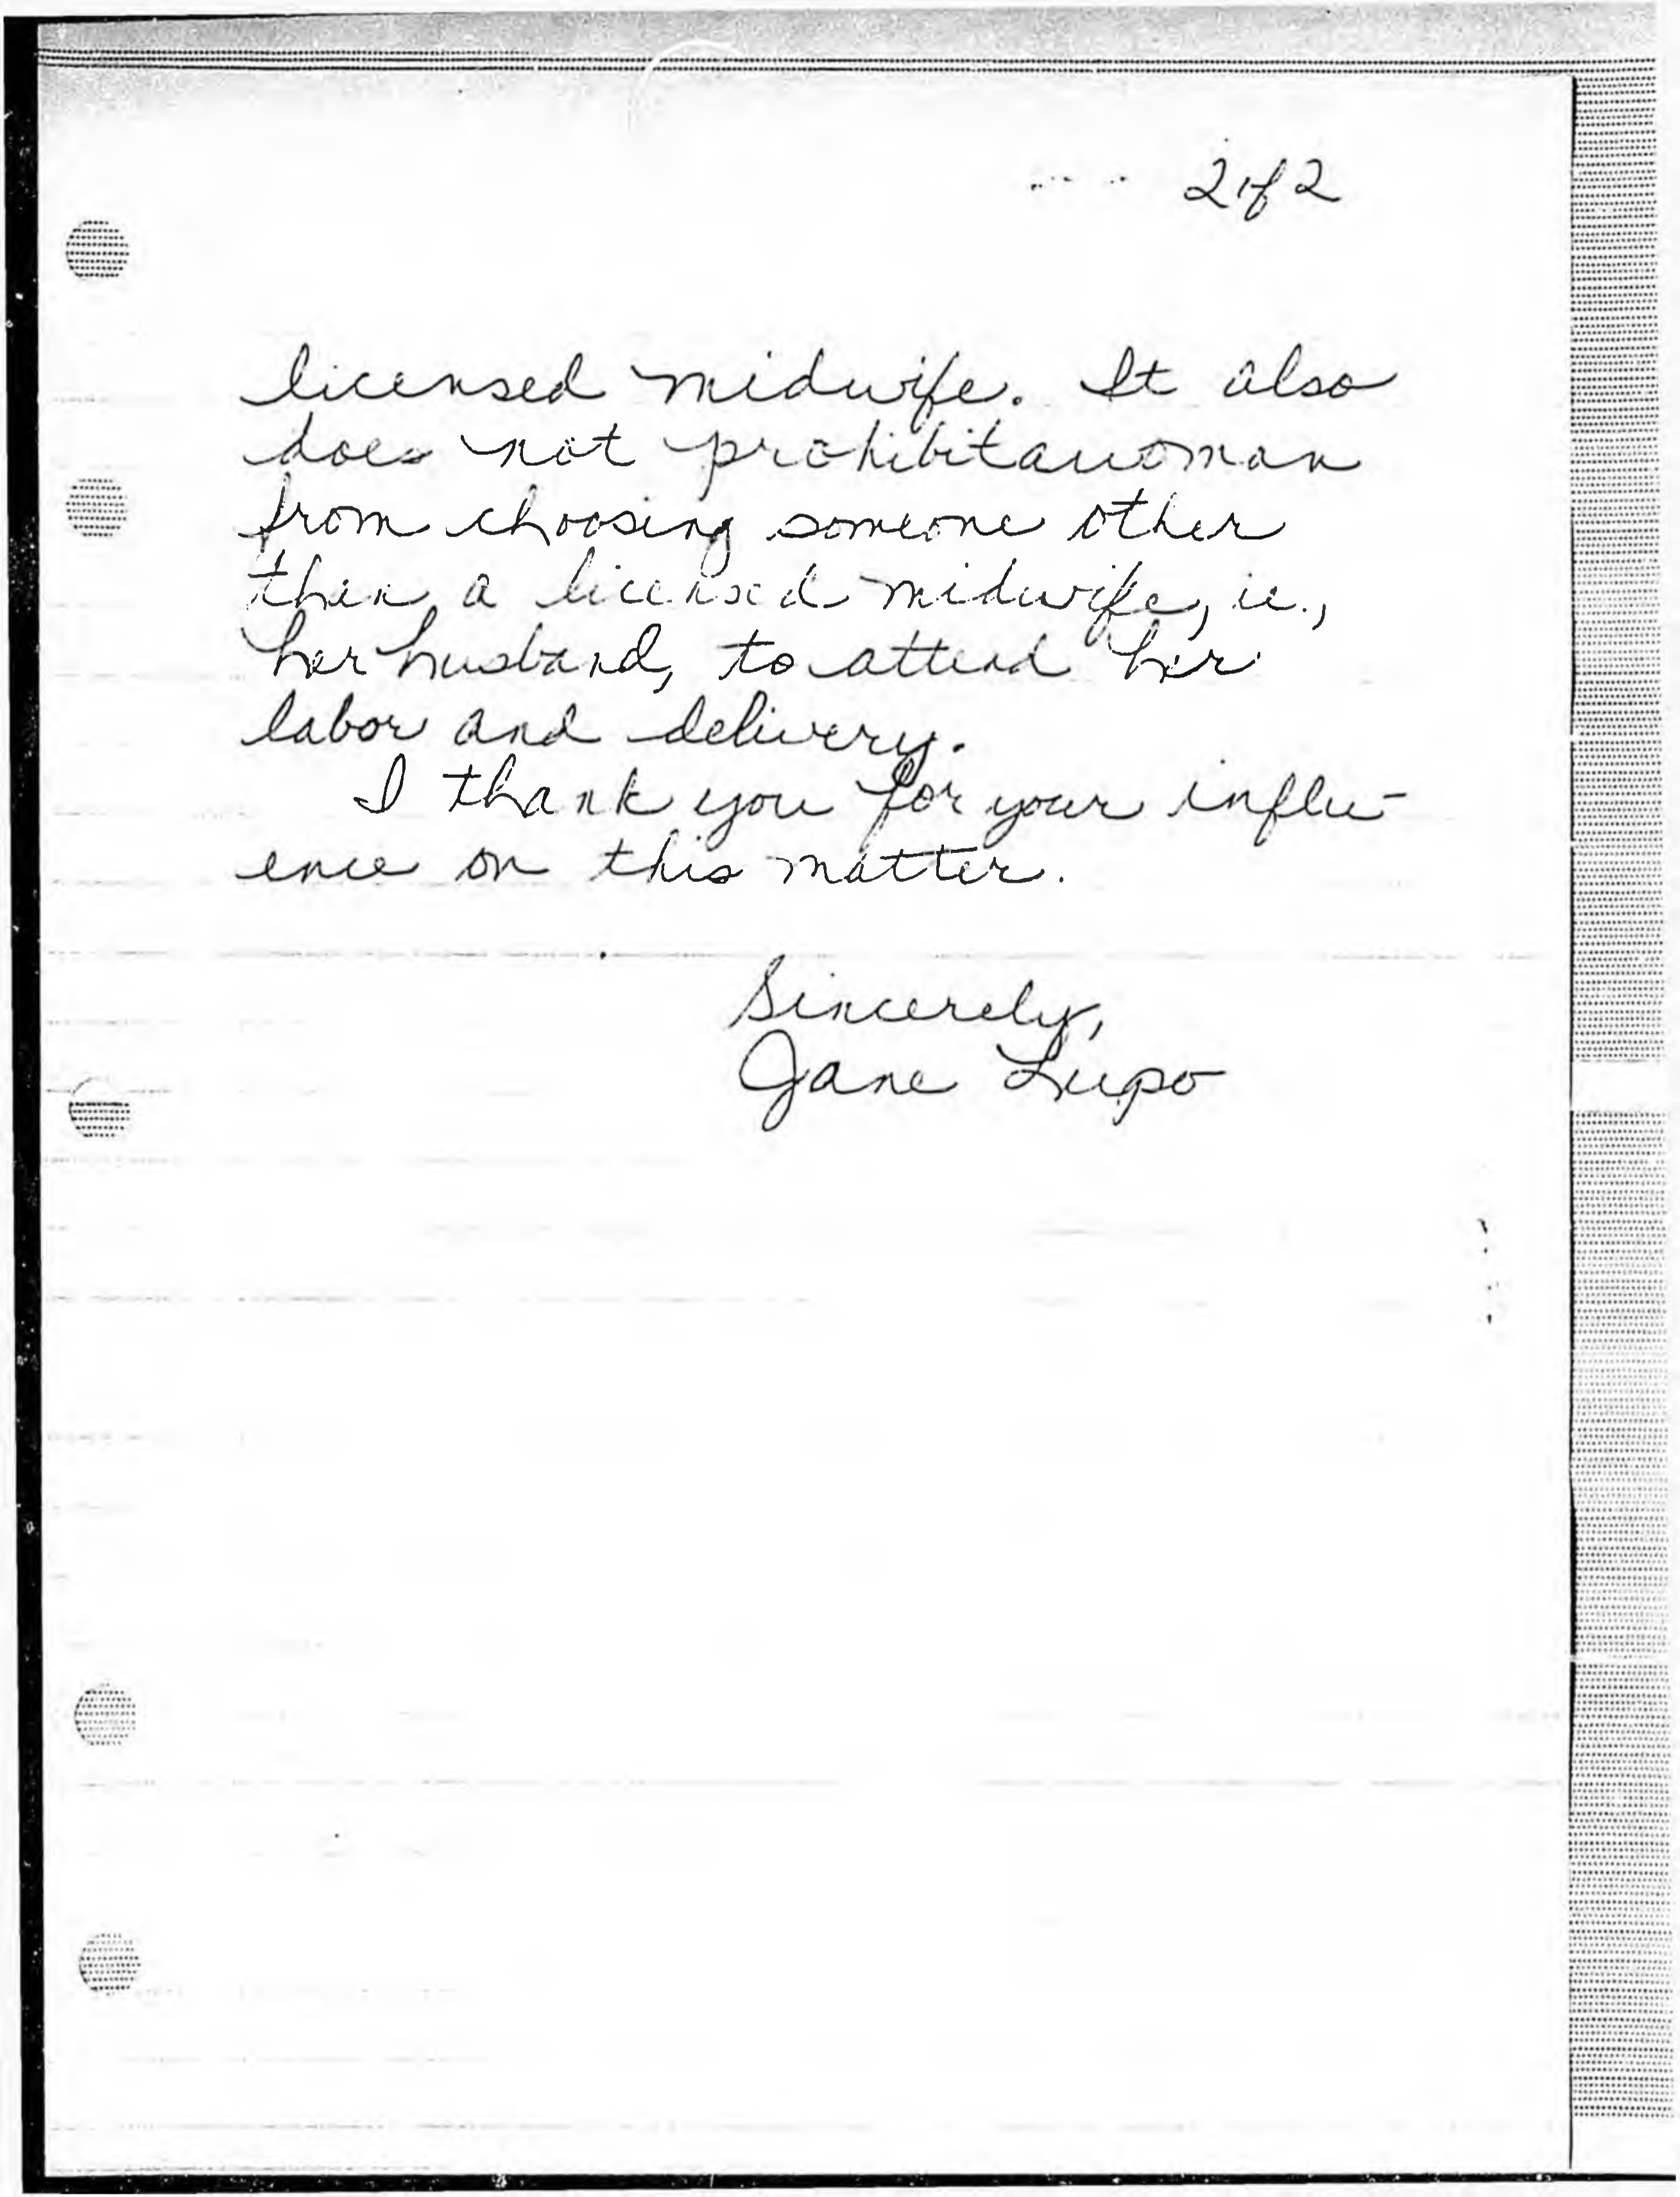 2 of 2
licensed midwife. It also
does not prohibit a woman
from choosing someone other
then a licensed midwife, ie.,
her husband, to attend her
labor and delivery.
I thank you for your influ-
ence on this matter.
Sincerely,
Jane Lupo